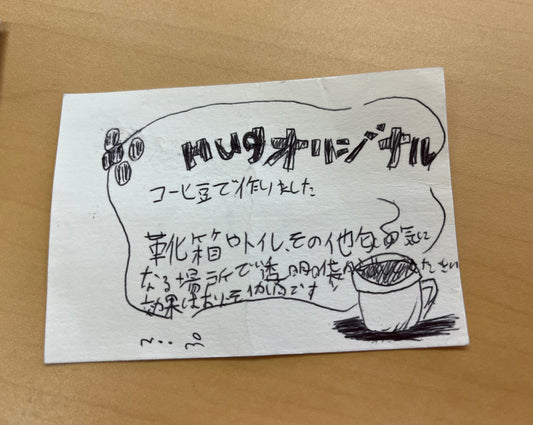 HUGオリジナル
コーヒー豆で作りました
靴箱やトイレ、その他匂いの気に
なる場所で透明袋 ださい
効果はおよそ1カ月です